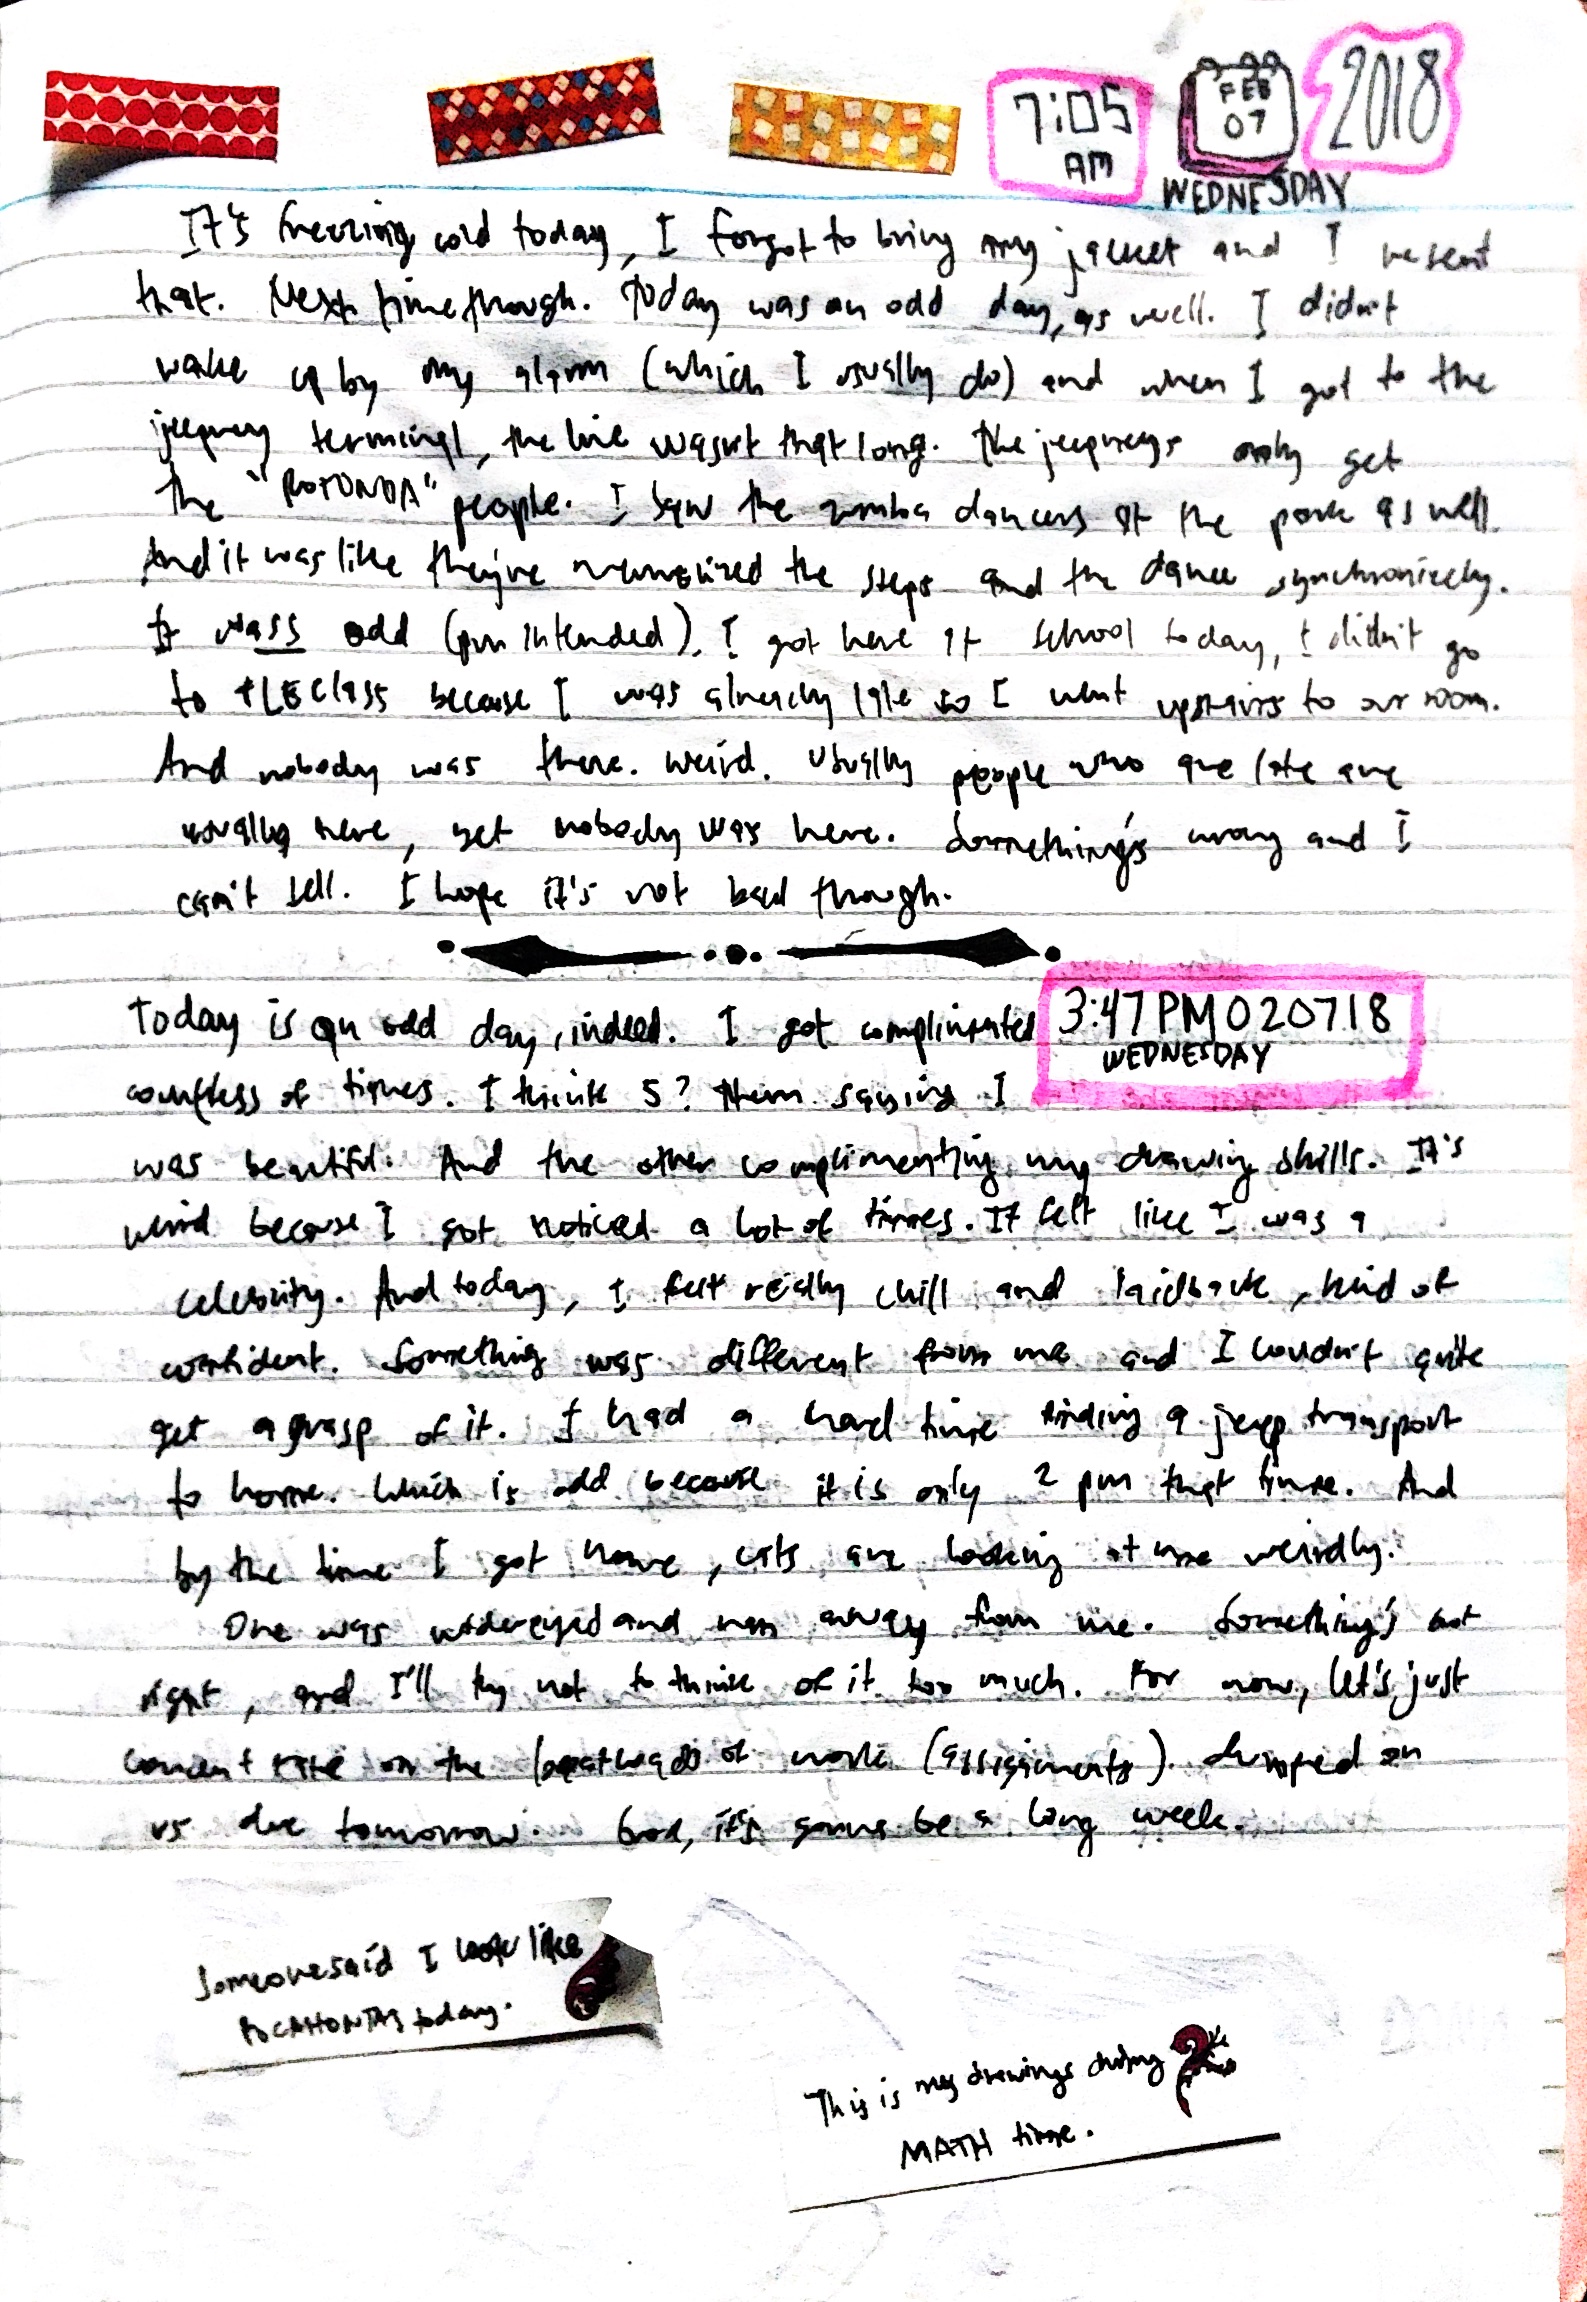 7:05
AM
FEB
07
2018
WEDNESDAY
It's freezing cold today, I forgot to bring my jacket and I resent
that. Next time though. Today was an odd day, as well. I didn't
wake up by my alarm (which I usually do) and when I got to the
jeepney terminal, the line wasn't that long. The jeepneys only get
the "ROTONDA" people. I saw the zumba dancers at the park as well.
And it was like they've memorized the steps and the dance synchronizely.
It wass odd (pun intended). I got here at school today, I didn't go
to TLE class because I was already late so I went upstairs to our room.
And nobody was there. Weird. Usually people who are late are
usually here, yet nobody was here. Something's wrong and I
can't tell. I hope it's not bad though.
Today is an odd day, indeed. I got complimented
3:47 PM 020718
WEDNESDAY
countless of times. I think 5? Them saying I
was beautiful. And the other complimenting my drawing skills. It's
weird because I got noticed a lot of times. It felt like I was a
celebrity. And today, I felt really chill and laidback, kind of
confident. Something was different from me and I couldn't quite
get a grasp of it. I had a hard time finding a jeep transport
to home. Which is odd because it is only 2 pm that time. And
by the time I got home, cats are looking at me weirdly.
One was widereyed and ran away from me. Something's not
right, and I'll try not to think of it too much. For now, let's just
concentrate on the of work (assignments) dumped on
us due tomorrow. God, it's gonna be a long week.
Someone said I look like
POCAHONTAS today.
This is my drawings during
MATH time.